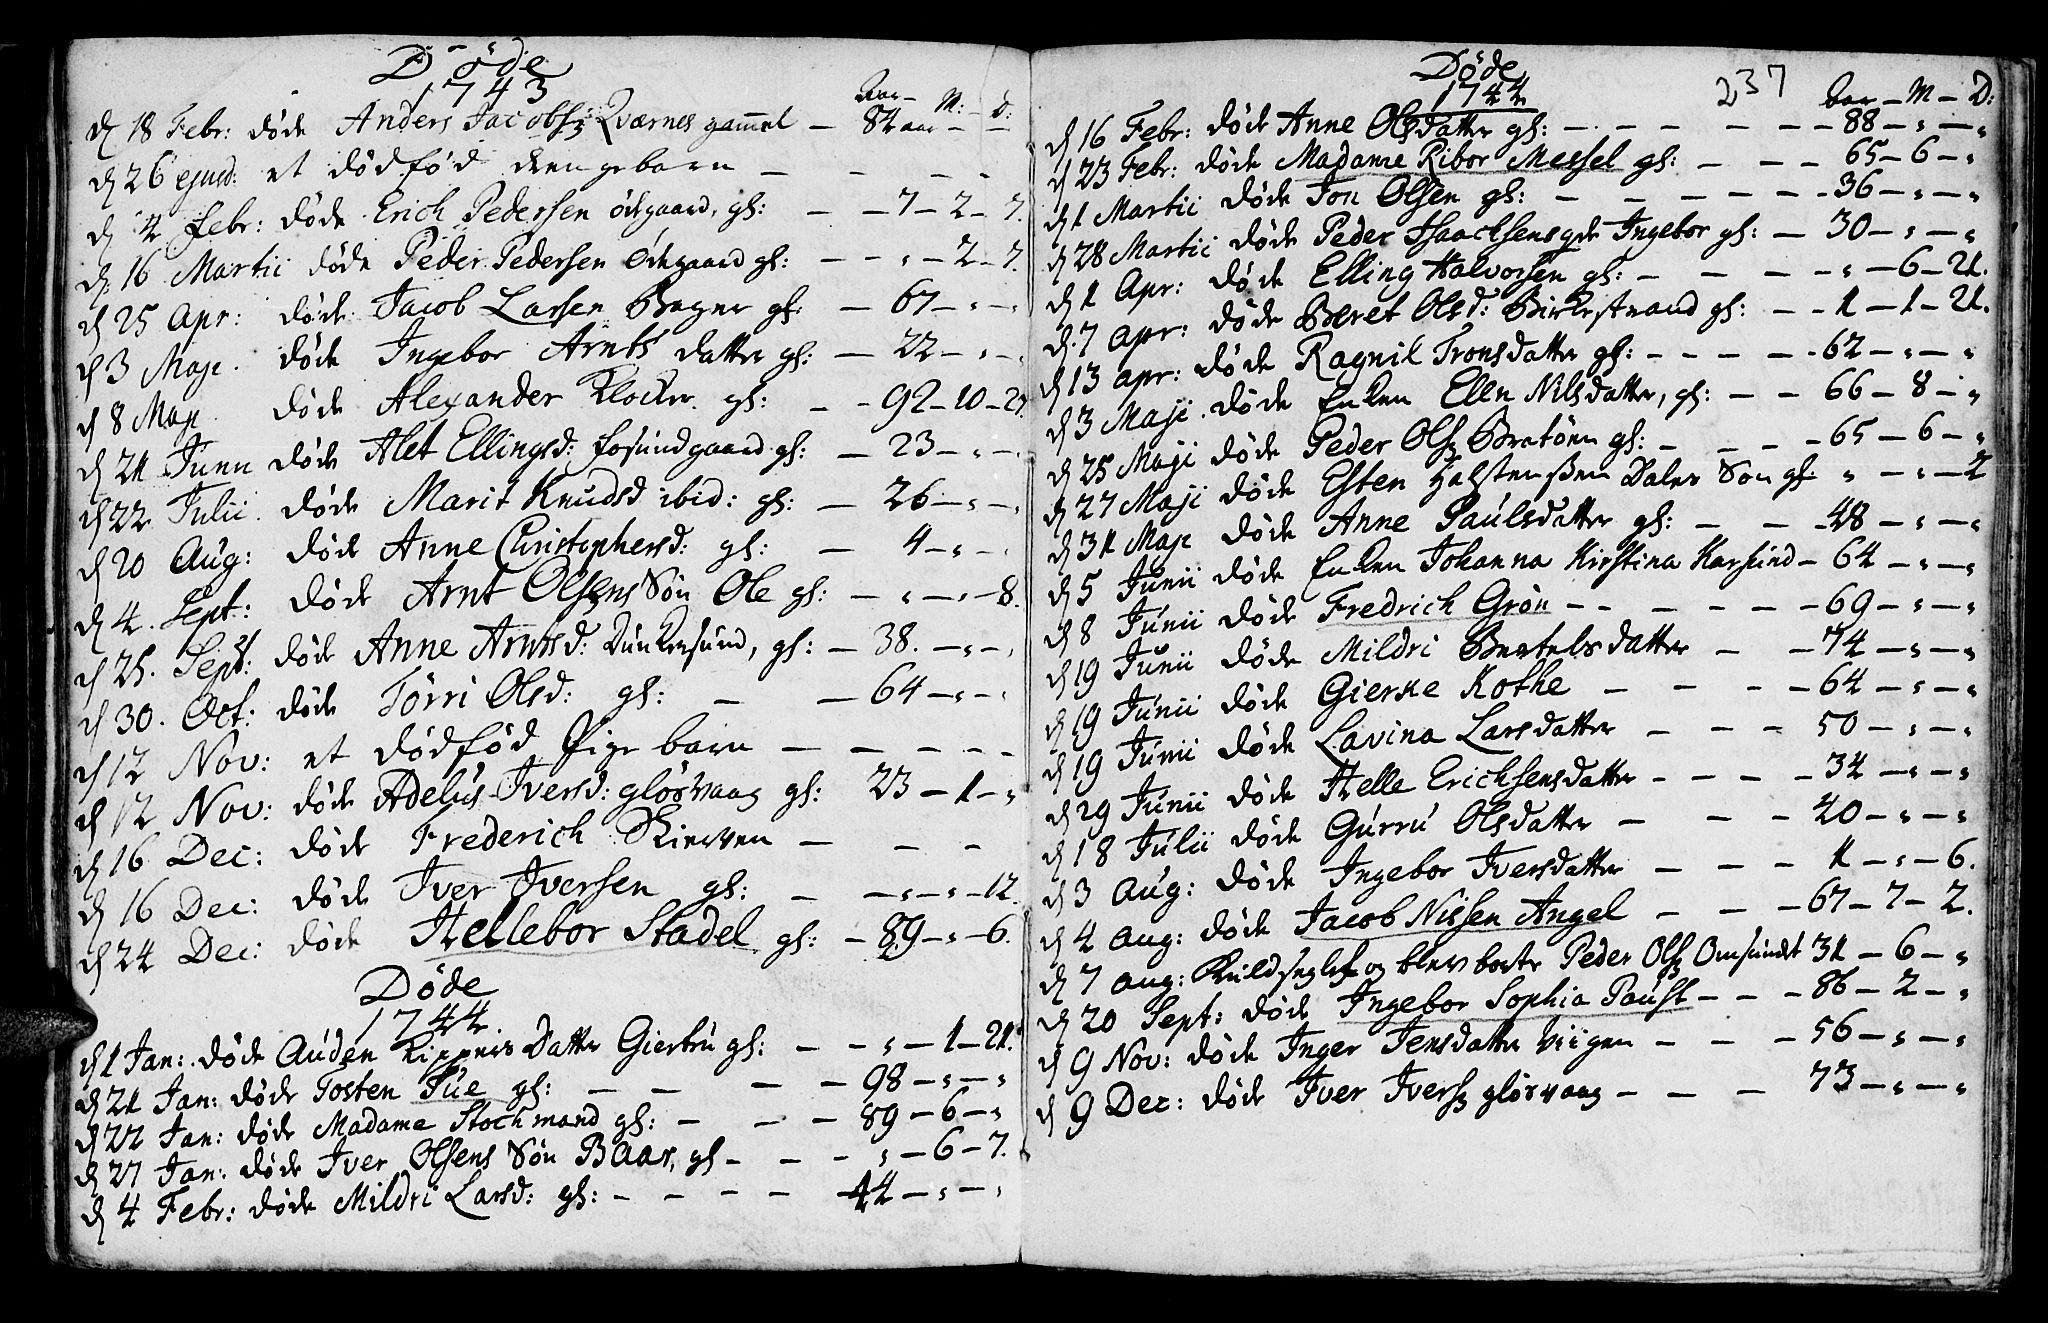 Døde
1743
Aar - M: - D:
d 18 Febr: døde Anders Jacobs: Qværnes gammel - 84 aar - -
d 26 ejusd: et dødfød drengebarn - - - -
d 4 febr: døde Erich Pedersen ødegaard, gl: - - 7 - 2 - 7.
d: 16 Martii døde Peder Pedersen Ødegaard gl: - - " - 2 - 7.
d 25 Apr: døde Jacob Larsen Bagur gl: - 67 - " - "
d 3 Maji. døde Ingebor Arnts datter gl: - 22 - " - "
d 8 Maji døde Alexander Klocker gl: - - 92 - 10 - 27.
d 21 Junii døde Alet Ellingsd: fosundgaard gl: - 23 - " -
d 22 Julii døde Marit Knudsd ibid: gl: - 26 - " - "
d 20 Aug: døde Anne Christophersd: gl: - 4 - " - "
d 4. Sept: døde Arnt Olsens Søn Ole gl: - " - " - 8.
d 25. Sept: døde Anne Arntsd: Dunkersund, gl: - 38. - " - "
d 30. Oct: døde Törri Olsd: gl: - - 64 - " - "
d 12 Nov: et dødfød Pige barn - - - - -
d 12 Nov: døde Adelus Iversd: glösvaag gl: 23 - 1 - "
d 16 Dec: døde Frederich Skierven - - -
d 16 Dec: døde Iver Iversen gl: - - " - " - 12.
d 24 Dec: døde Hellebor Stadel gl: - 89 - " - 6.
Døde
1744
d 1 Jan: døde Auden Kippers Datter Giertru gl: - - " - 1 - 21.
d 21 Jan: døde Tosten Tue gl: - - - - 98 - " - "
d 22 Jan: døde Madame Stochmand gl: - - - 89 - 6 - "
d 27 Jan: døde Iver Olsens Søn Baar, gl - - - " - 6 - 7.
d 4 Febr: døde Mildri Larsd: gl: - - - - 44 - " - "
Døde
1744
237
Aar - M - D:
d 16 Febr: døde Anne Olsdatter gl: - - - - - - 88 - " - "
d 23 Febr: døde Madame Ribor Messel gl: - - - 65 - 6 - "
d 1 Martii døde Jon Olsen gl: - - - - - 36 - " - "
d 28 Martii døde Peder Isaachsens gde Ingebor gl: - 30 - " - "
d 1 Apr: døde Elling Halvorsen gl: - - - - " - 6 - 21.
d. 7 Apr: døde Beret Olsd: Birkestrand gl: - - 1 - 1 - 21.
d 13 apr: døde Ragnil Tronsdatter gl: - - - - - 62 - " - "
d 3 Maji døde Enken Ellen Nilsdatter, gl: - - 66 - 8 - "
d 25 Maji døde Peder Ols: Bratöen gl: - - - - 65 - 6 - "
d 27 Maji døde Esten Halstenssen Dales Søn gl: " - " - 2
d 31 Maji døde Anne Paulsdatter gl: - - - 48 - " - "
d 5 Junii døde Enken Johanna Kirstina Karsund - 64 - " - "
d 8 Junii døde Fredrich Grøn - - - - - - 69 - " - "
d 19 Junii døde Mildri Bertelsdatter - - 74 - " - "
d 19 Junii døde Gierke Kothe - - - - 64 - " - "
d 19 Junii døde Lavina Larsdatter - - - 50 - " - "
d 29 Junii døde Helle Erichsensdatter - - - - 34 - " - "
d 18 Julii døde Gurru Olsdatter - - - 40 - " - "
d 3 Aug: døde Ingebor Iversdatter - - - 1 - " - 6.
d 4 Aug: døde Jacob Nissen Angel - - - 67 - 7 - 2.
d 7 Aug: Kuldseglet og blev borte Peder Ols: Omsundet 31 - 6 - "
d 20 Sept: døde Ingebor Sophia Paust - - - 86 - 2 - "
d 9 Nov: døde Inger Jensdatter Viigen - - - 56 - " - "
d 9 Dec: døde Iver Ivers: glösvaag - - - 73 - " - "